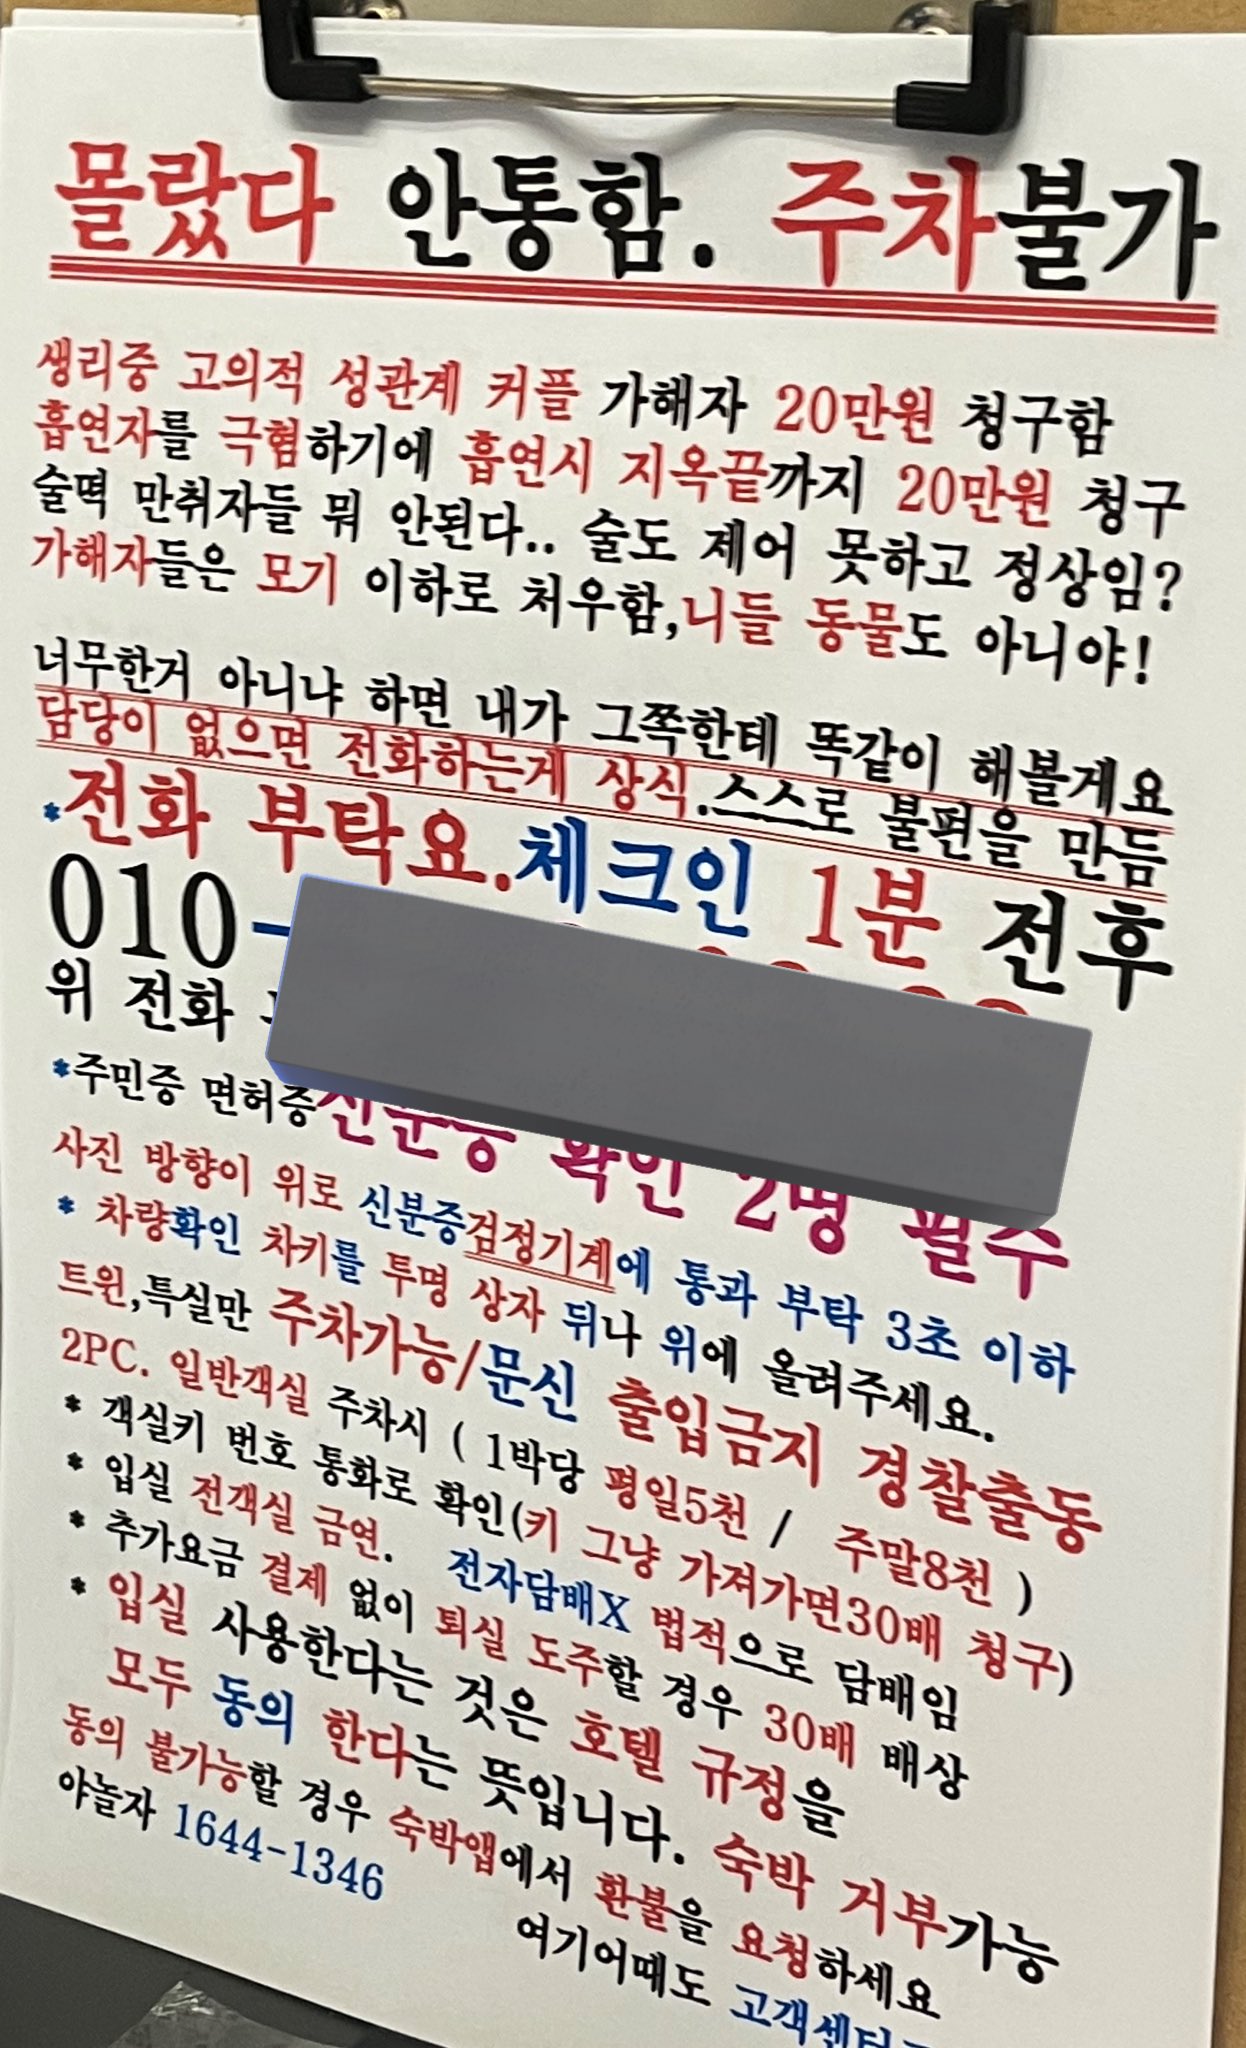 몰랐다 안통함. 주차불가
생리중 고의적 성관계 커플 가해자 20만원 청구함
흡연자를 극혐하기에 흡연시 지옥끝까지 20만원 청구
술떡 만취자들 뭐 안된다.. 술도 제어 못하고 정상임?
가해자들은 모기 이하로 처우함,니들 동물도 아니야!
너무한거 아니냐 하면 내가 그쪽한테 똑같이 해볼게요
담당이 없으면 전화하는게 상식.스스로 불편을 만듬
*전화 부탁요.체크인 1분 전후
010-
위 전화
*주민증 면허증신분증 확인 2명 필수
사진 방향이 위로 신분증검정기계에 통과 부탁 3초 이하
* 차량확인 차키를 투명 상자 뒤나 위에 올려주세요.
트윈,특실만 주차가능/문신 출입금지 경찰출동
2PC. 일반객실 주차시 ( 1박당 평일5천 / 주말8천 )
* 객실키 번호 통화로 확인(키 그냥 가져가면30배 청구)
* 입실 전객실 금연. 전자담배X 법적으로 담배임
* 추가요금 결제 없이 퇴실 도주할 경우 30배 배상
* 입실 사용한다는 것은 호텔 규정을
모두 동의 한다는 뜻입니다. 숙박 거부가능
동의 불가능할 경우 숙박앱에서 환불을 요청하세요
야놀자 1644-1346
여기어때도 고객센터